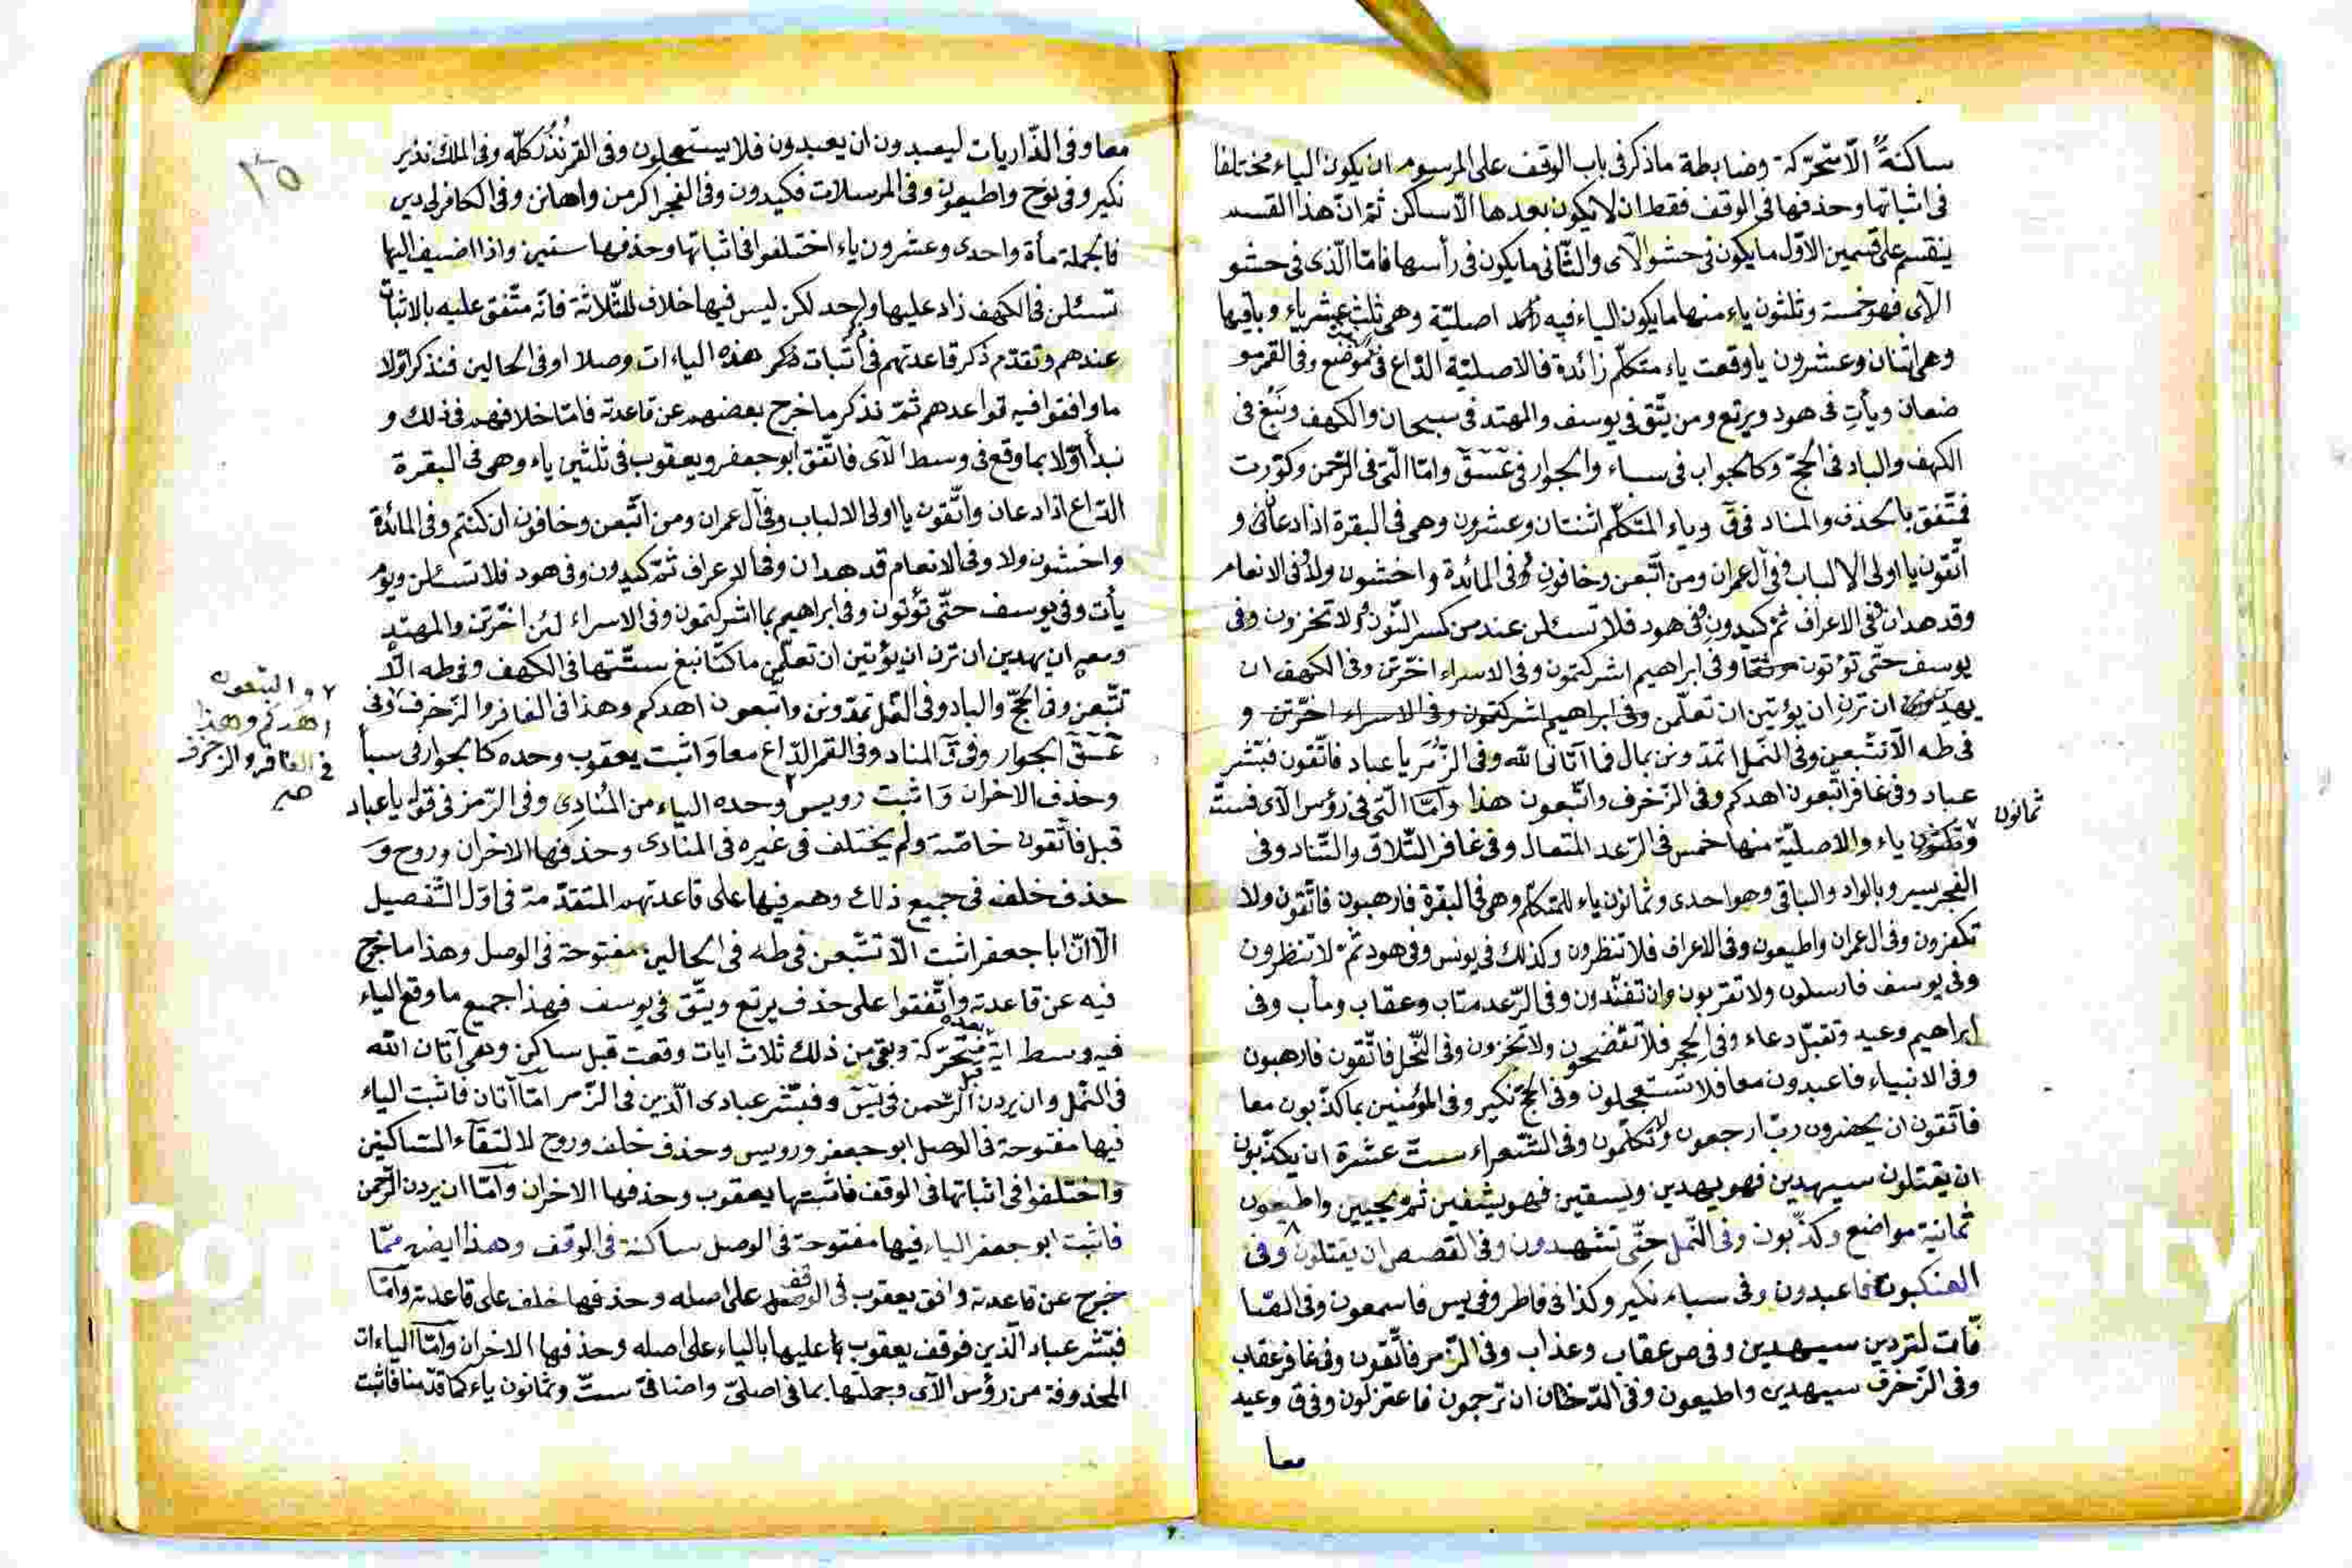 ساكنة الّا متحرّكة وضابطة ماذكر فى باب الوقف على المرسوم ان يكون الياء مختلفا
فى اثباتها وحذفها فى الوقف فقط ان لا يكون بعدها الّا ساكن ثمّ انّ هذا القسم
ينقسم على قسمين الاوّل ما يكون فى حشو الآى والثّانى ما يكون فى رأسها فامّا الّذى فى حشو
الآى فهو خمسة وثلثون ياء منها ما يكون الياء فيه اصليّة وهى ثلث عشر ياء وباقيها
وهى اثنان وعشرون يا وقعت ياء متكلّم زائدة فالاصليّة الدّاع فى موضع وفى القمر مو
ضعان ويأت فى هود ويرتع ومن يتّق فى يوسف والمهتد فى سبحان والكهف ونبغ فى
الكهف والباد فى الحجّ وكالجواب فى سباء والجوار فى عسق وامّا الّتى فى الرّحمن وكوّرت
فمتّفق بالحذف والمناد فى ق وياء المتكلّم اثنتان وعشرون وهى فى البقرة اذا دعانى و
اتّقون يا اولى الالباب وفى آل عمران ومن اتّبعن وخافون وفى المائدة واخشون ولا وفى الانعام
وقد هدان وفى الاعراف ثمّ كيدون وفى هود فلا تسئلن عند من كسر النّون ولا تخزون وفى
يوسف حتّى تؤتون وفى ابراهيم اشركتمون وفى الاسراء اخّرتن وفى الكهف ان
يهدين ان ترن ان يؤتين ان تعلّمن وفى ابراهيم اشركتمون وفى الاسراء اخّرتن و
فى طه الّا تتّبعن وفى النّمل اتمدّونن بمال فما آتانى الله وفى الزّمر يا عباد فاتّقون فبشّر
عباد وفى غافر اتّبعون اهدكم وفى الزّخرف واتّبعون هذا وامّا الّتى فى رؤس الآى فستّة
ثمانون
وثلثون ياء والاصليّة منها خمس فى الرّعد المتعال وفى غافر التّلاق والتّناد وفى
الفجر يسر وبالواد والباقى وهو احدى وثمانون ياء للمتكلّم وهى فى البقرة فارهبون فاتّقون ولا
تكفرون وفى ال عمران واطيعون وفى الاعراف فلا تنظرون وكذلك فى يونس وفى هود ثمّ لا تنظرون
وفى يوسف فارسلون ولا تقربون وان تفنّدون وفى الرّعد متاب وعقاب ومأب وفى
ابراهيم وعيد وتقبّل دعاء وفى الحجر فلا تفضحون ولا تخزون وفى النّحل فاتّقون فارهبون
وفى الانبياء فاعبدون معا فلا تستعجلون وفى الحجّ نكير وفى المؤمنين بما كذّبون معا
فاتّقون ان يحضرون ربّ ارجعون ولا تكلّمون وفى الشّعراء ستّ عشرة ان يكذّبون
ان يقتلون سيهدين فهو يهدين ويسقين فهو يشفين ثمّ يحيين واطيعون
ثمانية مواضع وكذّبون وفى النّمل حتّى تشهدون وفى القصص ان يقتلون وفى
العنكبوت فاعبدون وفى سباء نكير وكذا فى فاطر وفى يس فاسمعون وفى الصّا
فّات لتردين سيهدين وفى ص عقاب وعذاب وفى الزّمر فاتّقون وفى غافر عقاب
وفى الزّخرف سيهدين واطيعون وفى الدّخان ان ترجمون فاعتزلون وفى ق وعيد
معا
٢٥
معا وفى الذّاريات ليعبدون ان يعبدون فلا يستعجلون وفى القمر نذر كلّه وفى الملك نذير
نكير وفى نوح واطيعون وفى المرسلات فكيدون وفى الفجر اكرمن واهانن وفى الكافر لى دين
فالجملة مأة واحدى وعشرون ياء اختلفوا فى اثباتها وحذفها ستين واذا اضيف اليها
تسئلن فى الكهف زاد عليها واحد لكن ليس فيها خلاف للثّلاثة فانّه متّفق عليه بالاثبات
عندهم وتقدّم ذكر قاعدتهم فى اثبات ذكر هذه الياءات وصلا او فى الحالين فنذكر اوّلا
ما وافقوا فيه قواعدهم ثمّ نذكر ما خرج بعضهم عن قاعدته فامّا خلافهم فى ذلك و
نبدأ اوّلا بما وقع فى وسط الآى فاتّفق ابو جعفر ويعقوب فى ثلثين ياء وهى فى البقرة
الدّاع اذا دعان واتّقون يا اولى الالباب وفى آل عمران ومن اتّبعن وخافون ان كنتم وفى المائدة
واخشون ولا وفى الانعام قد هدان وفى الاعراف ثمّ كيدون وفى هود فلا تسئلن ويوم
يأت وفى يوسف حتّى تؤتون وفى ابراهيم بما اشركتمون وفى الاسراء لئن اخّرتن والمهتد
ومعه ان يهدين ان ترن ان يؤتين ان تعلّمن ما كنّا نبغ ستّتها فى الكهف وفى طه الّا
تتّبعن وفى الحجّ والباد وفى النّمل تمدّونن واتّبعون اهدكم وهذا فى الغافر والزّخرف وفى
واتّبعون
اهدكم وهذا
فى الغافر والزخرف
صح
عسق الجوار وفى ق المناد وفى القمر الدّاع معا واثبت يعقوب وحده كالجواب فى سبأ
وحذف الاخران واثبت رويس وحده الياء من المنادى وفى الزّمر فى قوله يا عباد
قبل فاتّقون خاصّة ولم يختلف فى غيره فى المنادى وحذفها الاخران وروح و
حذف خلف فى جميع ذلك وهم فيها على قاعدتهم المتقدّمة فى اوّل التّفصيل
الّا انّ ابا جعفر اثبت الّا تتّبعن فى طه فى الحالين مفتوحة فى الوصل وهذا ما خرج
فيه عن قاعدته واتّفقوا على حذف يرتع ويتّق فى يوسف فهذا جميع ما وقع الياء
فيه وسط اية بعده متحرّكة وبقى من ذلك ثلاث ايات وقعت قبل ساكن وهى آتان الله
فى النّمل وان يردن الرّحمن فى يس وفبشّر عبادى الّذين فى الزّمر امّا آتان فاثبت الياء
فيها مفتوحة فى الوصل ابو جعفر ورويس وحذف خلف وروح لالتقاء السّاكنين
واختلفوا فى اثباتها فى الوقف فاثبتها يعقوب وحذفها الاخران وامّا ان يردن الرّحمن
فاثبت ابو جعفر الياء فيها مفتوحة فى الوصل ساكنة فى الوقف وهذا ايضه ممّا
خرج عن قاعدته وافق يعقوب فى الوقف على اصله وحذفها خلف على قاعدته وامّا
فبشّر عباد الّذين فوقف يعقوب عليها بالياء على اصله وحذفها الاخران وامّا الياءات
المحذوفة من رؤس الآى وجملتها بما فى اصلىّ واضافىّ ستّ وثمانون ياء كما قدّمنا فاثبت